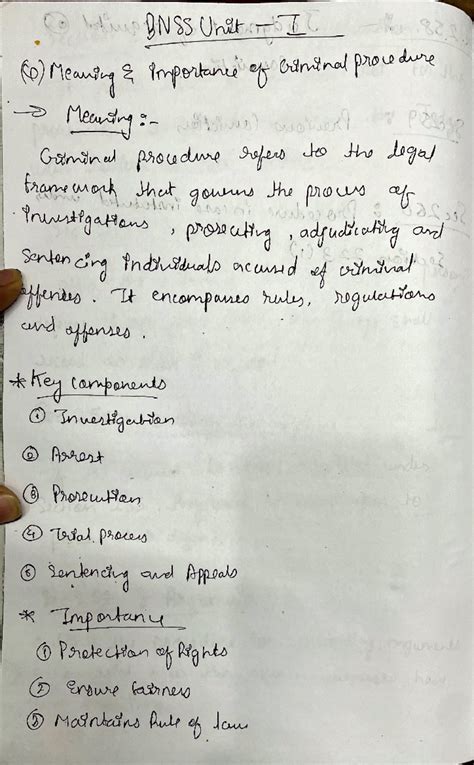 BNSS Unit - I
(Q) Meaning & Importance of Criminal procedure
→ Meaning :-
Criminal procedure refers to the legal
framework that governs the process of
Investigations, prosecuting, adjudicating and
Sentencing Individuals accused of criminal
offenses. It encompasses rules, regulations
and offenses.
* Key components
① Investigation
② Arrest
③ Prosecution
④ Trial process
⑤ Sentencing and Appeals
* Importance
① Protection of Rights
② Ensure fairness
③ Maintains Rule of law